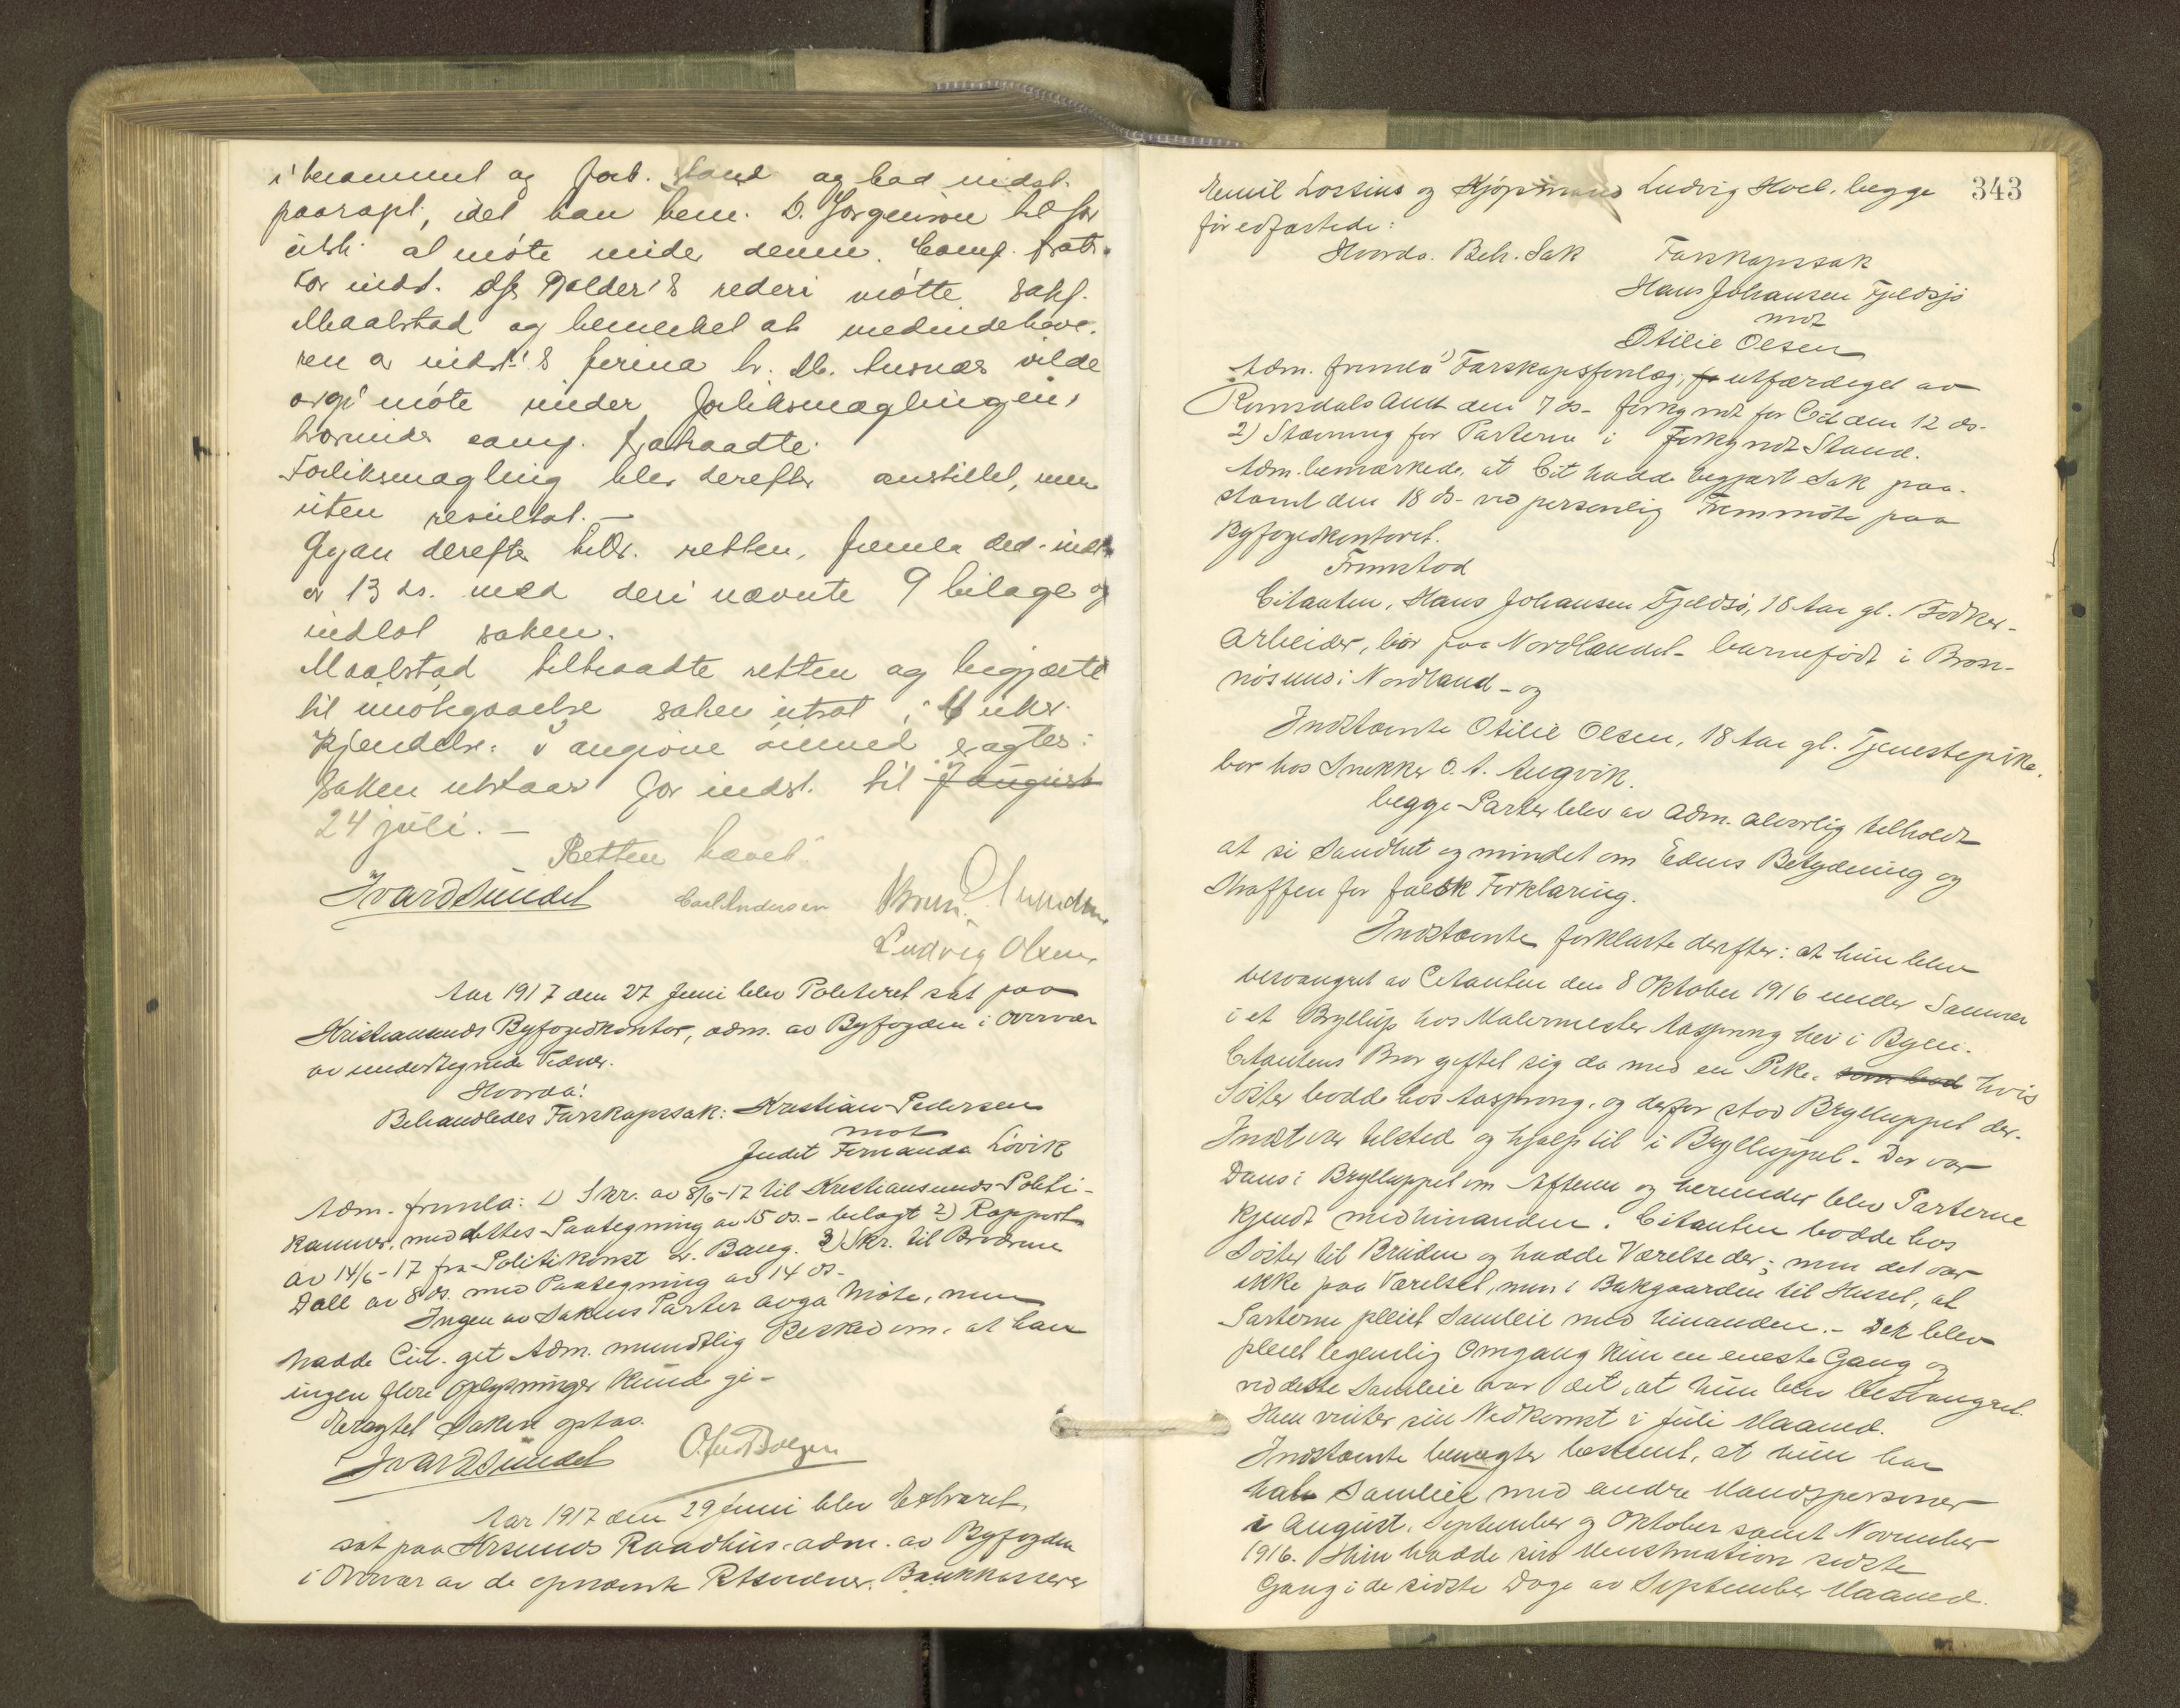 i berammet og forb. stand og bad indst.
paaropt, idet han bem. D. Jørgensen
at møte under denne. Comp. fratr.
For indst. Gjelder's rederi møtte sakf.
Maalstad og bemerket at medindehave-
ren av indst.'s firma hr. vilde
avgi møte under forliksmæglingen,
hvorunder comp. fratraadte.
Forliksmægling blev derefter anstillet, men
uten resultat. —
derefter tiltr. retten, fremla
av 13 ds. med deri nævnte 9 bilage og
indlot saken.
Maalstad tiltraadte retten og begjærte
til imøtegaaelse saken utsat i 4 uker.
Kjendelse: I angivne øiemed eragtes:
Saken utstaar for indst. til 7 august
24 juli. —
Retten hævet.
Ivar Dsundet Carl Andersen
Ludvig Olsen
Aar 1917 den 27 Juni blev Politiret sat paa
Kristiansunds Byfogedkontor, adm. av Byfogden i Overvær
av undertegnede Vidner.
Hvorda:
Behandledes Farskapssak: Kristian Pedersen
mot
Judit Fernanda Løvik
Adm. fremla: 1) Skr. av 8/6-17 til Kristiansunds Politi-
kammer, med dettes Paategning av 15 ds. - belagt 2) Rapport
av 14/6-17 fra Politikonst. Bang. 3) Skr. til Brødrene
Dall av 8 ds. med Paategning av 14 ds.
Ingen av Sakens Parter avga Møte, men
hadde Cit. git Adm. mundtlig Besked om, at han
ingen flere Oplysninger kunde gi -
Eragtet Saken optas.
Ivar Dsundet
Aar 1917 den 29 Juni blev Extraret
sat paa Krsunds Raadhus, adm. av Byfogden
i Overvær av de opnævnte Retsvidner, Bankkasserer
343
Emil Lossius og Kjøpmand Ludvig Hoel, begge
før edfæstede:
Hvorda. Beh. Sak Farskapssak
Hans Johansen Fjeldsjø
mot
Otilie Olsen
Adm. fremla 1) Farskapsforelæg, fr utfærdiget av
Romsdals Amt den 7 ds - forkyndt for Cit den 12 ds.
2) Stævning for Parterne i Forkyndt Stand.
Adm. bemærkede, at Cit hadde begjært Sak paa-
stævnt den 18 ds - ved personlig Fremmøte paa
Byfogedkontoret.
Fremstod
Citanten, Hans Johansen Fjeldsø, 18 Aar gl. Bødker-
arbeider, bor paa Nordlandet - barnefødt i Brøn-
nøsund i Nordland - og
Indstævnte Otilie Olsen, 18 Aar gl. Tjenestepike,
bor hos Snekker O. A. Angvik.
begge Parter blev av Adm. alvorlig tilholdt
at si Sandhet og mindet om Edens Betydning og
Straffen for falsk Forklaring.
Indstævnte forklarte derefter: at hun blev
besvangret av Citanten den 8 Oktober 1916 under Samvær
i et Bryllup hos Malermester Aasprong her i Byen.
Citantens Bror giftet sig da med en Pike, som bod hvis
Søster bodde hos Aasprong, og derfor stod Bryllupet der.
Indst var tilsted og hjalp til i Bryllupet - Der var
Dans i Bryllupet om Aftenen og herunder blev Parterne
kjendt med hinanden. Citanten bodde hos
Søster til Bruden og hadde Værelse der; men det var
ikke paa Værelset, men i Bakgaarden til Huset, at
Parterne pleiet Samleie med hinanden. - Det blev
pleiet legemlig Omgang kun en eneste Gang og
ved dette Samleie var det, at hun blev besvangret.
Hun venter sin Nedkomst i Juli Maaned.
Indstævnte benegter bestemt, at hun har
hat Samleie med andre Mandspersoner
i August, September og Oktober samt November
1916. Hun hadde sin Menstruation sidste
Gang i de sidste Dage av September Maaned.